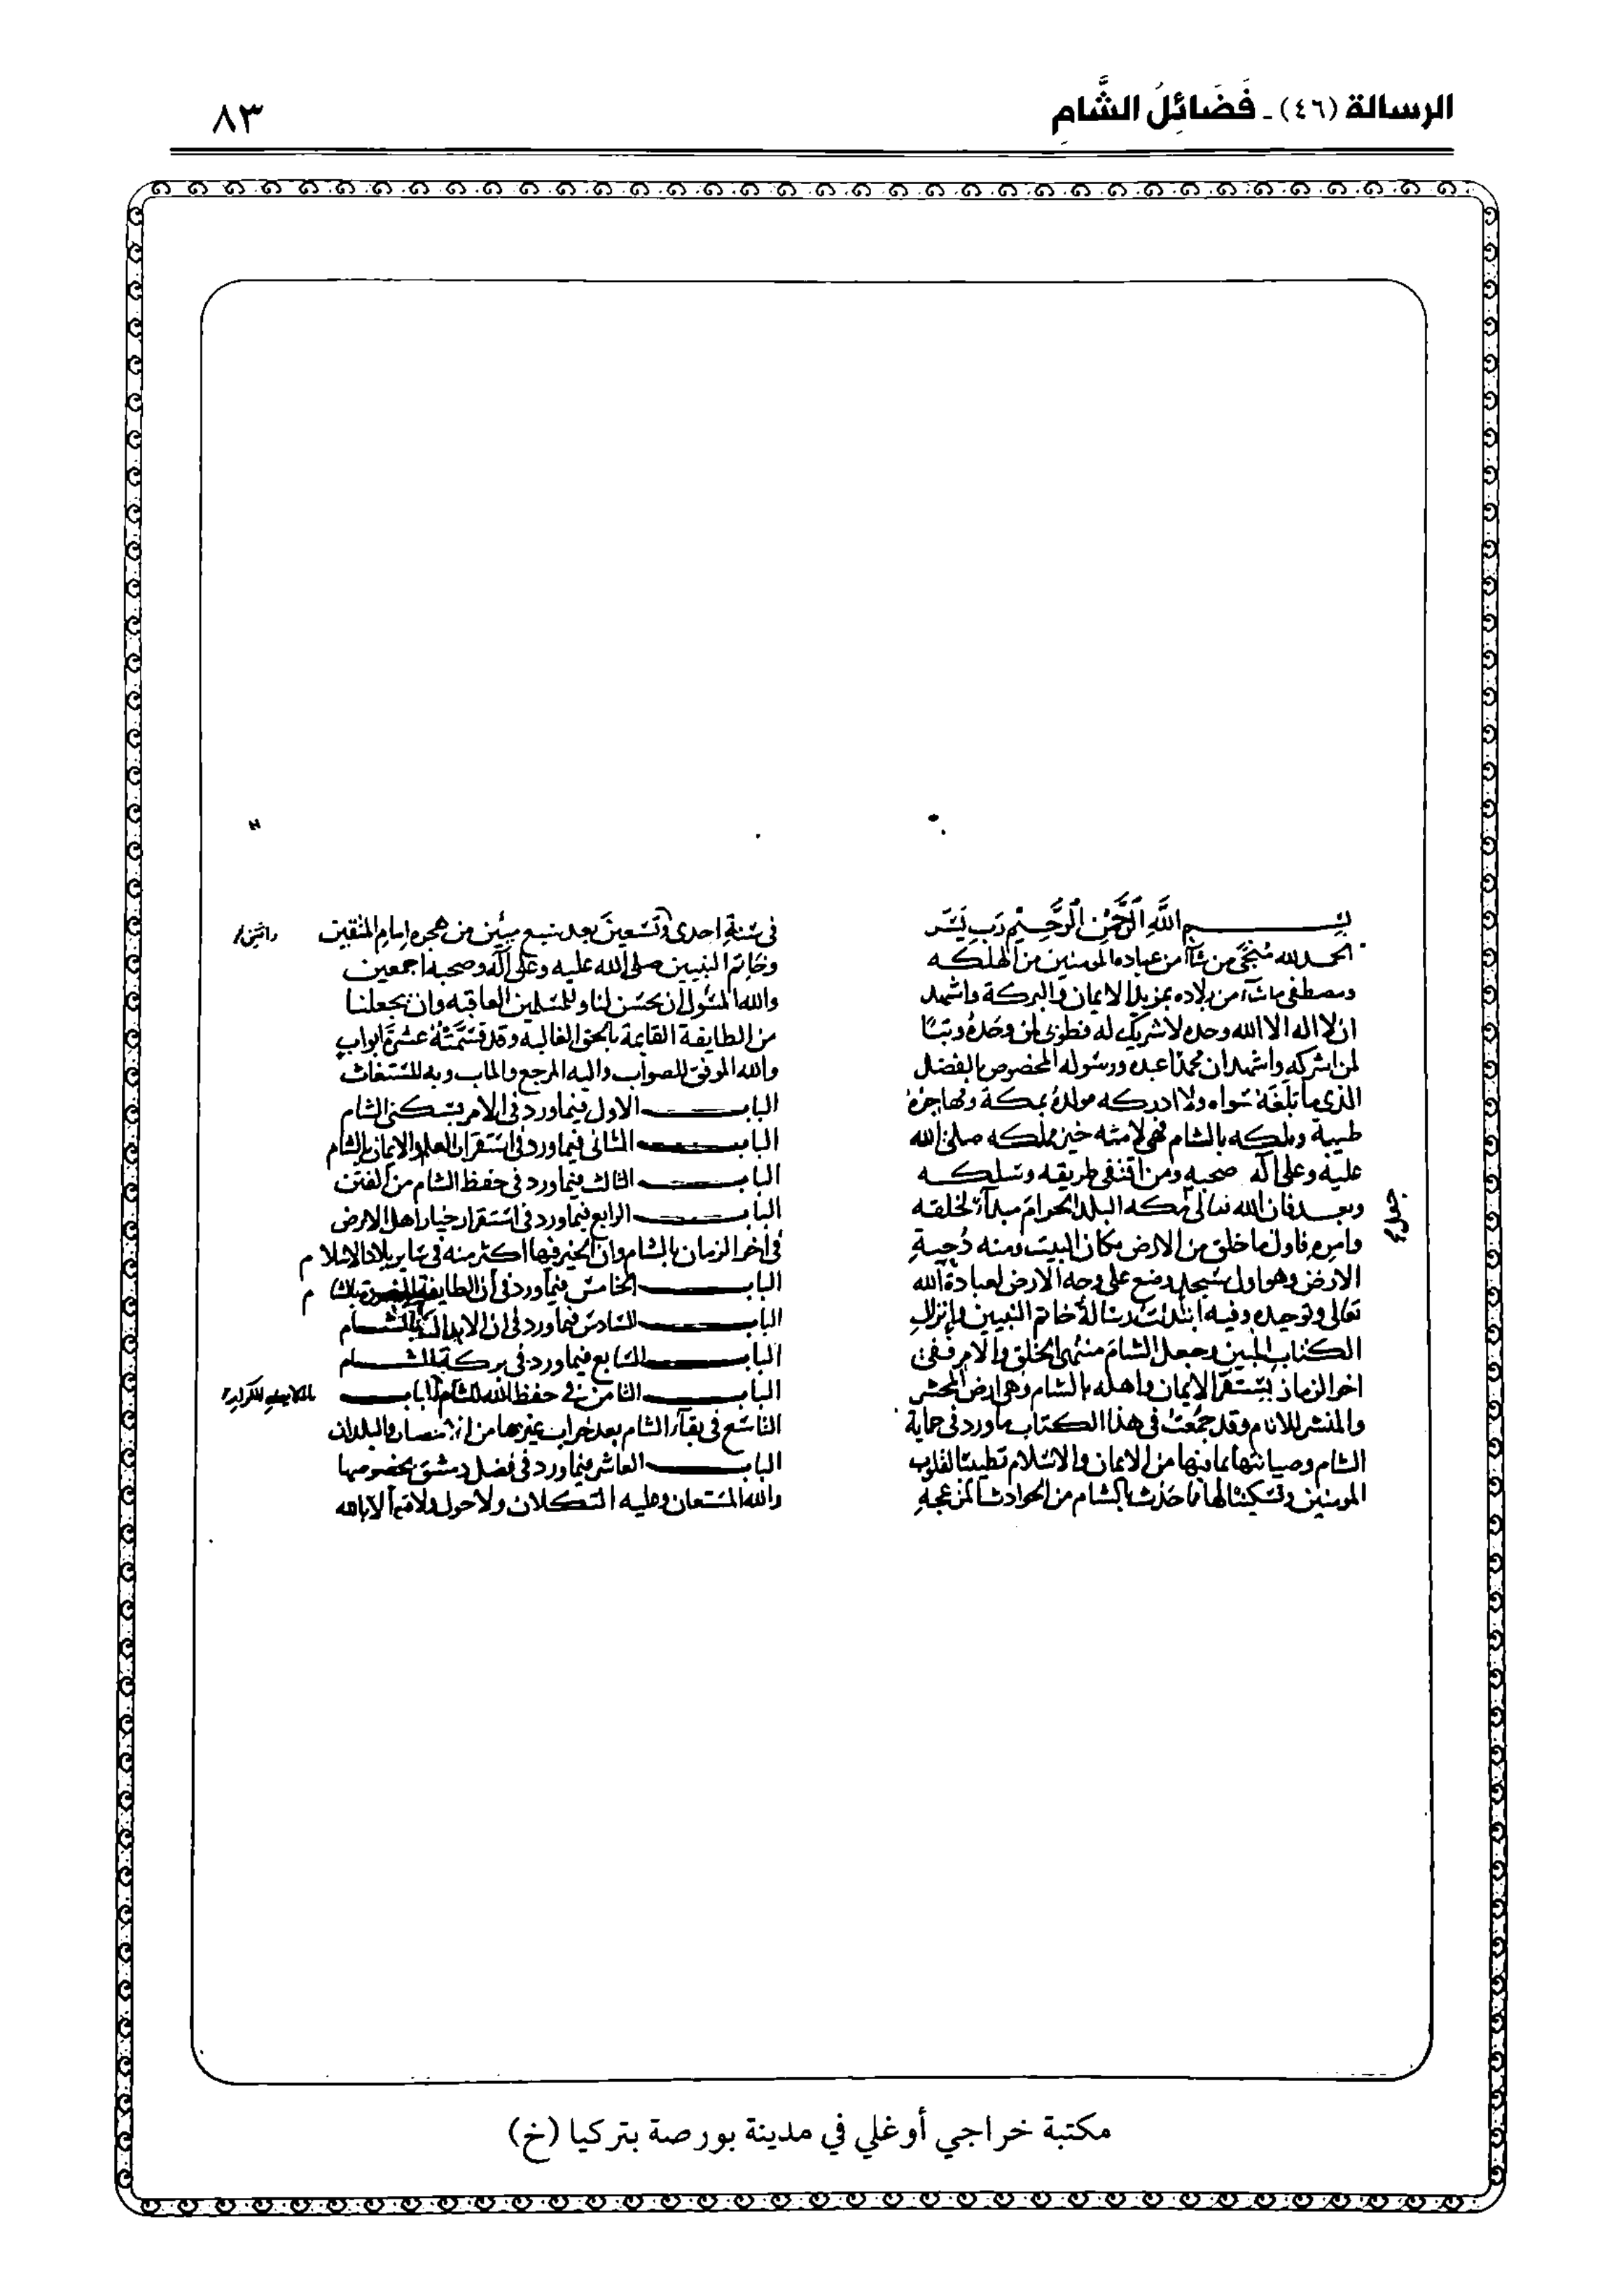 الرسالة (٤٦) - فَضَائِلُ الشَّامِ
٨٣
بسم الله الرحمن الرحيم رب يسر
الحمد لله منجي من شاء من عباده المومنين من الهلكه
ومصطفي ما شاء من بلاده بمزيد الايمان والبركة واشهد
ان لا اله الا الله وحده لا شريك له فطوبى لمن وحده وتبا
لمن اشركه واشهد ان محمدا عبده ورسوله المخصوص بالفضل
الذي ما بلغه سواه ولا ادركه مولده بمكة ومهاجره
طيبة وملكه بالشام فهي لامته خير مملكه صلى الله
عليه وعلى آله صحبه ومن اقتفى طريقه وسلكه
وبعد فان الله تعالى مكه البلد الحرام مبدأ لخلقه
وامره فاول ما خلق من الارض مكان البيت ومنه دحية
الارض وهو اول مسجد وضع على وجه الارض لعبادة الله
تعالى وتوحيده وفيه ابتدات رسالة خاتم النبيين وانزل
الكتاب المبين وجعل الشام منتهى الخلق والامر ففي
اخر الزمان يستقر الايمان واهله بالشام وهي ارض المحشر
والمنشر للانام وقد جمعت في هذا الكتاب ما ورد في حماية
الشام وصيانتها بما فيها من الايمان والاسلام تطييبا لقلوب
المومنين وتسكينا لها بما حدث بالشام من الحوادث المزعجة
جعل
في سنة احدى وتسعين بعد سبع مئين من هجره امام المتقين
وخاتم النبيين صلى الله عليه وعلى آله وصحبه اجمعين
والله المسؤل ان يحسن لنا وللمسلمين العاقبه وان يجعلنا
من الطايفة القايمة بالحق الغالبه وقد قسمته عشرة ابواب
والله الموفق للصواب واليه المرجع والماب وبه المستغاث
الباب الاول فيما ورد في الامر بسكنى الشام
الباب الثاني فيما ورد في استقرار العلم والايمان بالشام
الباب الثالث فيما ورد في حفظ الشام من الفتن
الباب الرابع فيما ورد في استقرار خيار اهل الارض
في اخر الزمان بالشام وان الخير فيها اكثر منه في ساير بلاد الاسلام
الباب الخامس فيما ورد في أن الطايفة المنصورة بالشام
الباب السادس فيما ورد في ان الابدال بالشام
الباب السابع فيما ورد في بركة الشام
الباب الثامن في حفظ الله الشام الباب
التاسع في بقاء الشام بعد خراب غيرها من الامصار والبلدان
الباب العاشر فيما ورد في فضل دمشق بخصوصها
والله المستعان وعليه التكلان ولا حول ولا قوة الا بالله
مكتبة خراجي أوغلي في مدينة بورصة بتركيا (خ)